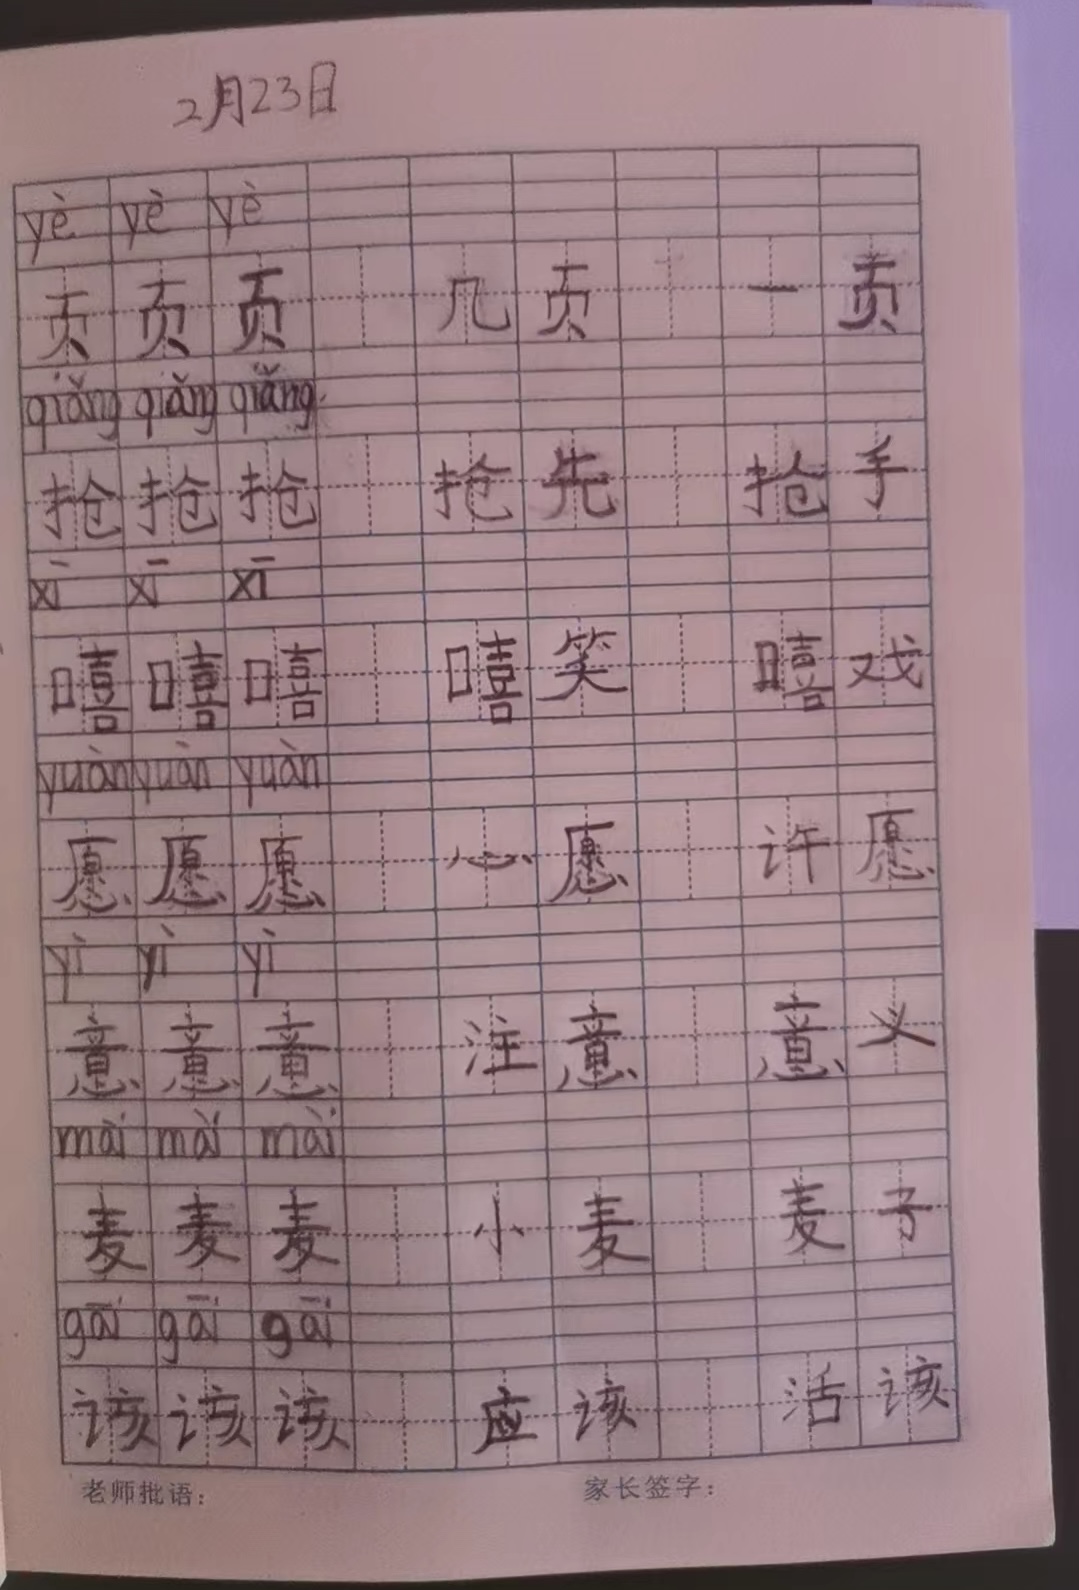 2月23日
yè yè yè
页 页 页 几 页 一 页
qiǎng qiǎng qiǎng
抢 抢 抢 抢 先 抢 手
xī xī xī
嘻 嘻 嘻 嘻 笑 嘻 戏
yuàn yuàn yuàn
愿 愿 愿 心 愿 许 愿
yì yì yì
意 意 意 注 意 意 义
mài mài mài
麦 麦 麦 小 麦 麦 子
gāi gāi gāi
该 该 该 应 该 活 该
老师批语： 家长签字：